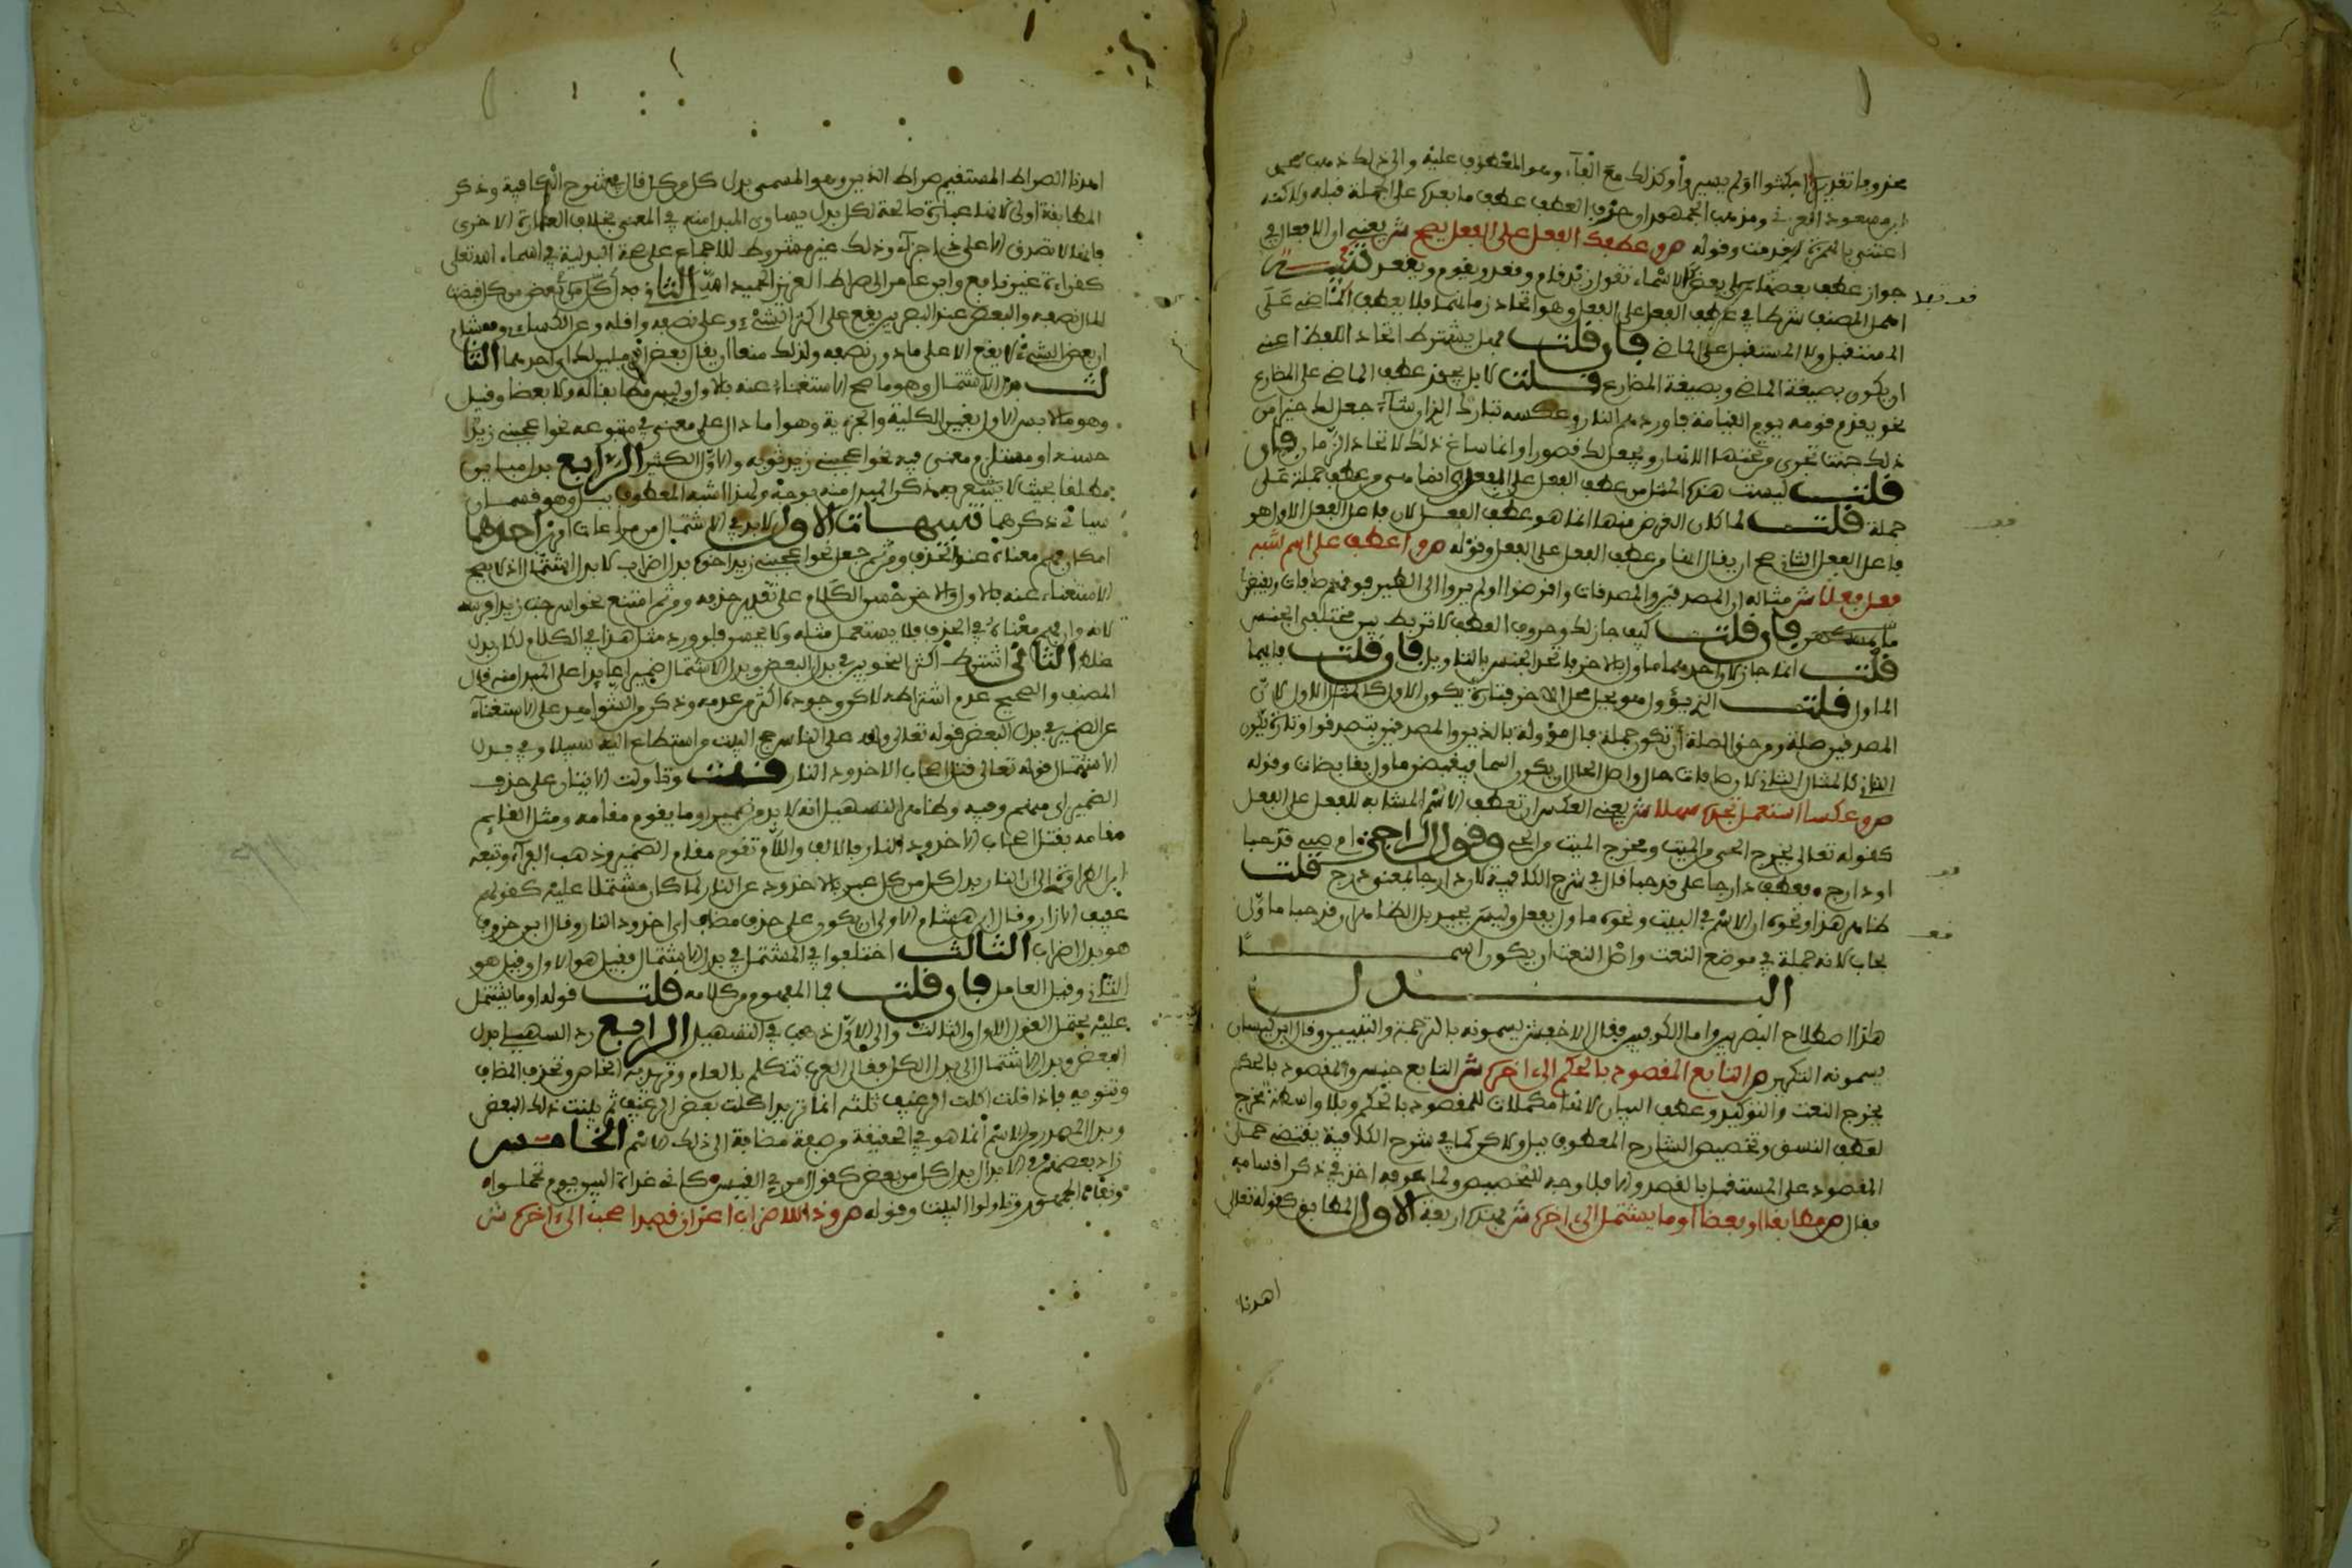 محذوفا تقديره امكثوا اولم يسيروا وكذلك مع الفاء وهو المعطوف عليه والى ذلك ذهب محمد
ابن مسعود الغزني ومذهب الجمهور ان حرف العطف عطف ما بعده على الجملة قبله ولاكنه
اعتني بالهمزة فقدمت وقوله ص وعطفك الفعل على الفعل يصح ش يعني ان الافعال في
جواز عطف بعضها على بعض كالاسماء تقول زيد قام وقعد ويقوم ويقعد تنبيه
اهمل المصنف شرطا في عطف الفعل على الفعل وهو اتحاد زمانهما فلا يعطف الماضي على
المستقبل ولا المستقبل على الماضي فان قلت فهل يشترط اتحاد اللفظ اعني
ان يكون بصيغة الماضي وبصيغة المضارع قلت لا بل يجوز عطف الماضي على المضارع
نحو يقدم قومه يوم القيامة فاوردهم النار وعكسه تبارك الذي ان شاء جعل لك خيرا من
ذلك جنات تجري من تحتها الانهار ويجعل لك قصورا وانما ساغ ذلك لاتحاد الزمان فان
قلت ليست هذه المثل من عطف الفعل على الفعل انما هي من عطف جملة على
جملة قلت لما كان الغرض منها انما هو عطف الفعل لان فاعل الفعل الاول هو
فاعل الفعل الثاني صح ان يقال انها من عطف الفعل على الفعل وقوله ص واعطف على اسم شبه
فعل فعلا ش مثاله ان المصدقين والمصدقات واقرضوا اولم يروا الى الطير فوقهم صافات ويقبضن
ما يمسكهن فان قلت كيف جاز ذلك وحروف العطف لا تربط بين مختلفي الجنس
قلت انما جاز لان احدهما ماول بالاخر فاتحد الجنس بالتاويل فان قلت فايهما
الماول قلت الذي يؤول هو يحل محل الاخر فتارة يكون الاول كالمثال الاول لان
المصدقين صلة ومن حق الصلة ان تكون جملة فال مؤولة بالذين والمصدقين بتصدقوا وتارة يكون
الثاني كالمثال الثاني لان صافات حال واصل الحال ان يكون اسما فيقبضن ماول بقابضات وقوله
ص وعكسا استعمل تجده سهلا ش يعني العكس ان تعطف الاسم المشابه للفعل على الفعل
كقوله تعالى يخرج الحي من الميت ومخرج الميت من الحي وقول الراجز ام صبي قد حبا
او دارج فعطف دارجا على قد حبا قال في شرح الكافية لان دارجا بمعنى درج قلت
ظاهر هذا ونحوه ان الاسم في البيت ونحوه ماول بفعل وليس بجيد بل الظاهر ان قد حبا ماول
بحاب لانه جملة في موضع النعت واصل النعت ان يكون اسما
البدل
هذا اصطلاح البصريين واما الكوفيون فقال الاخفش يسمونه بالترجمة والتبيين وقال ابن كيسان
يسمونه التكرير ص التابع المقصود بالحكم الى اخره ش التابع جنس والمقصود بالحكم
يخرج النعت والتوكيد وعطف البيان لانها مكملات للمقصود بالحكم وبلا واسطة يخرج
لعطف النسق وتخصيص الشارح المعطوف ببل ولاكن كما في شرح الكافية يقتضي حمل
المقصود على المستقل بالقصد والا فلا وجه للتخصيص ولما عرفه اخذ في ذكر اقسامه
فقال ص مطابقا او بعضا او ما يشتمل الى اخره ش فهذه اربعة الاول المطابق كقوله تعالى
اهدنا
اهدنا الصراط المستقيم صراط الذين وهو المسمى بدل كل من كل قال في شرح الكافية وذكر
المطابقة اولى لانها عبارة صالحة لكل بدل يساوي المبدل منه في المعنى بخلاف العبارة الاخرى
فانها لا تصدق الا على ذي اجزاء وذلك غير مشروط للاجماع على صحة البدلية في اسماء الله تعالى
كقراءة غير نافع وابن عامر الى صراط العزيز الحميد الله الثاني بدل بعض من كل قبضت
المال نصفه والبعض عند البصريين يقع على اكثر الشيء وعلى نصفه واقله وعن الكسائي وهشام
ان بعض الشيء لا يقع الا على ما دون نصفه ولذلك منعا ان يقال بعض الرجلين لك اي احدهما الثا
لث بدل الاشتمال وهو ما صح الاستغناء عنه بالاول وليس مطابقا له ولا بعضا وقيل
وهو ما لابس الاول بغير الكلية والجزءية وهو اما دال على معنى في متبوعه نحو اعجبني زيد
حسنه او مستلزم معنى فيه نحو اعجبني زيد ثوبه والاول اكثر الرابع بدل مباين
مطلقا بحيث لا يشعر به ذكر المبدل منه بوجه ولهذا اشبه المعطوف ببل وهو قسمان
سياتي ذكرهما تنبيهات الاول لا بد في الاشتمال من مراعات امرين احدهما
امكان فهم معناه عند الحذف ومن ثم جعل نحو اعجبني زيد اخوه بدل اضراب لا بدل اشتمال اذ لا يصح
الاستغناء عنه بالاول والاخر حسن الكلام على تقدير حذفه ومن ثم امتنع نحو اسرجت زيدا فرسه
لانه وان فهم معناه في الحذف فلا يستعمل مثله ولا يحسن فلو ورد مثل هذا في الكلام لكان بدل
غلط الثاني اشترط اكثر النحويين في بدل البعض وبدل الاشتمال ضميرا عايدا على المبدل منه قال
المصنف والصحيح عدم اشتراطه لاكن وجوده اكثر من عدمه وذكر من الشواهد على الاستغناء
عن الضمير في بدل البعض قوله تعالى ولله على الناس حج البيت من استطاع اليه سبيلا وفي بدل
الاشتمال قوله تعالى قتل اصحاب الاخدود النار قلت وتاولت الايتان على حذف
الضمير اي منهم وفيه وظاهر التسهيل انه لا بد من ضمير او ما يقوم مقامه ومثل القايم
مقامه بقتل اصحاب الاخدود النار فالالف واللام تقوم مقام الضمير وذهب الفراء وتبعه
ابن الطراوة الى ان النار بدل كل من كل عبر بالاخدود عن النار لما كان مشتملا عليه كقولهم
عفيف الازار وقال ابن هشام الاولى ان يكون على حذف مضاف اي اخدود النار وقال ابن خروف
هو بدل اضراب الثالث اختلفوا في المشتمل في بدل الاشتمال فقيل هو الاول وقيل هو
الثاني وقيل العامل فان قلت فما المفهوم من كلامه قلت قوله او ما يشتمل
عليه يحتمل القول الاول والثالث والى الاول ذهب في التسهيل الرابع رد السهيلي بدل
البعض وبدل الاشتمال الى بدل الكل فقال العرب تتكلم بالعام وتريد به الخاص وتحذف المضاف
وتنويه فاذا قلت اكلت الرغيف ثلثه انما تريد اكلت بعض الرغيف ثم بينت ذلك البعض
وبدل المصدر من الاسم انما هو في الحقيقة من صفة مضافة الى ذلك الاسم الخامس
زاد بعضهم في الابدال بدل كل من بعض كقول امرئ القيس كاني غداة البين يوم تحملوا
ونفاه الجمهور وتاولوا البيت وقوله ص وذا للاضراب اعز ان قصدا صحب الى اخره ش